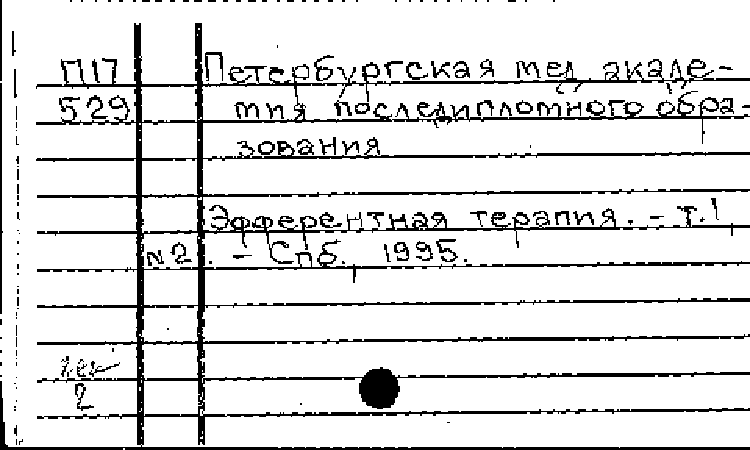 П17 Петербургская мед акаде-
529 мия последипломного обра-
зования
Эфферентная терапия. - т.1,
№2. - Спб. 1995.
2